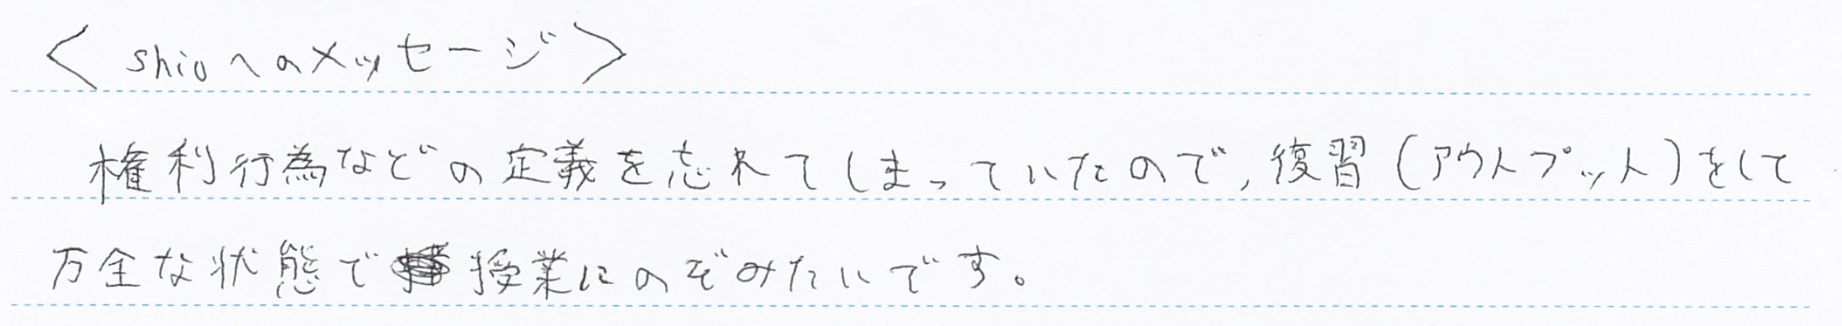 <shioへのメッセージ>
権利行為などの定義を忘れてしまっていたので,復習(アウトプット)をして
万全な状態で授業にのぞみたいです。